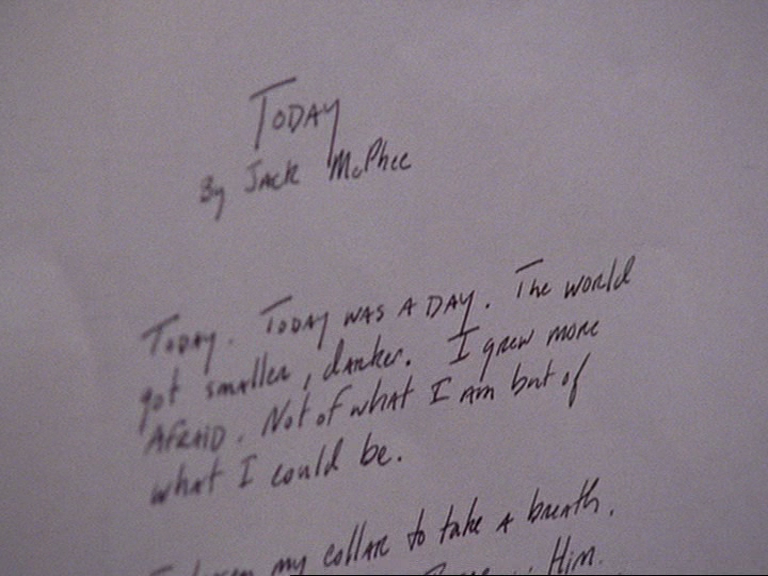 TODAY
By JACK McPhee
TODAY. TODAY WAS A DAY. The world
got smaller, darker. I grew more
AFRAID. Not of what I am but of
what I could be.
my collar to take a breath.
Him.